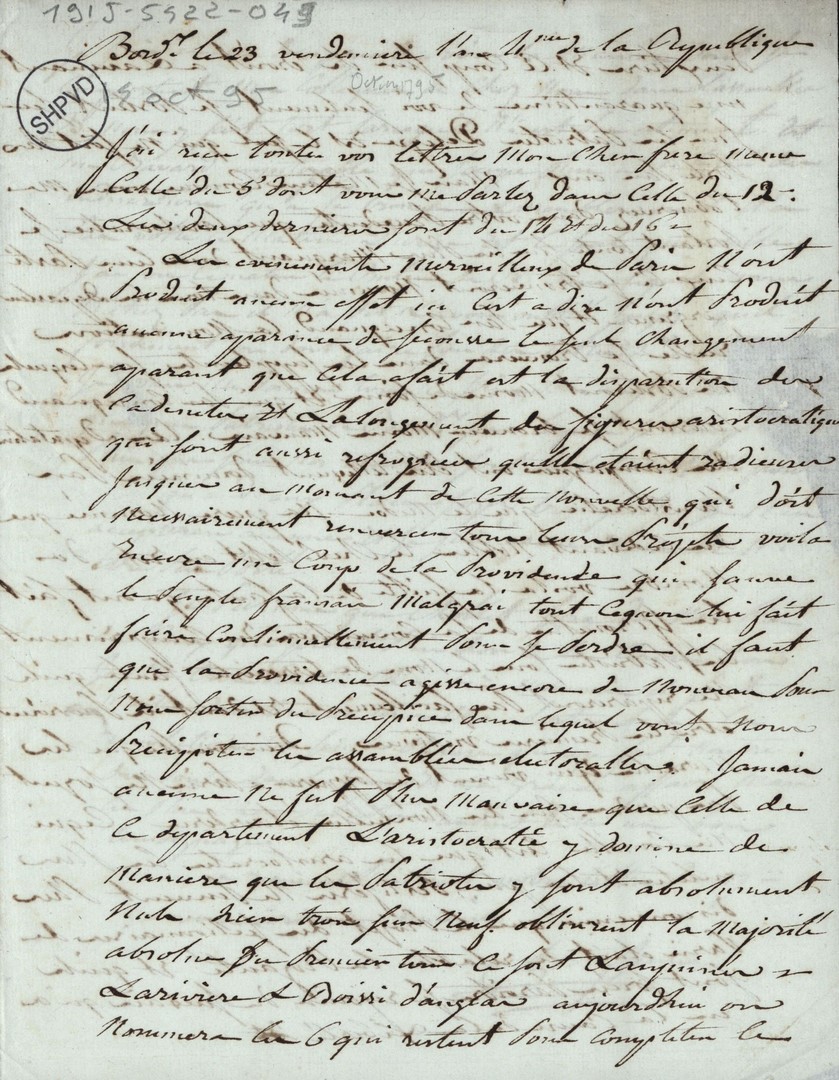 19 IJ-5922-049
Bord.x le 23 vendemiere l'an 4me de la Republique
SHPVD
8 oct 95
Octobre 1795
J'ai recu toutes vos lettres mon cher frere meme
Celle du 5 dont vous me Parlez dans Celle du 12.
Les deux dernieres sont du 14 et du 16
Les evenements merveilleux de Paris N'ont
Produit aucun effet ici C'est a dire N'ont Produit
aucune aparence de secousse le seul changement
aparant que Cela a fait est la disparution des
Cadenetes et L'alongement des figures aristocratiques
qui sont aussi refrognées quelles etaient radieuses
Jusques au momant de Cette nouvelle qui doit
necessairement renverser tous leurs Projets voila
Encore un Coup de la Providence qui sauve
le Peuple fransais Malgrai tout Cequon lui fait
faire Continuellement Pour se Perdre il faut
que la Providence agisse encore de Nouveau Pour
Nous sortir du Precipice dans lequel vont Nous
Precipiter les assamblées electoralles. Jamais
aucune Ne fut Plus Mauvaise que Celle de
Ce departement L'aristocratie y domine de
Maniere que les Patriotes y sont absolument
Nuls hier trois sur Neuf obtinrent la Majorité
absolue du Premier tour Ce sont Lanjuinais
Lariviere & Boissi d'anglas aujourdhui on
Nommera les 6 qui restent Pour completer le